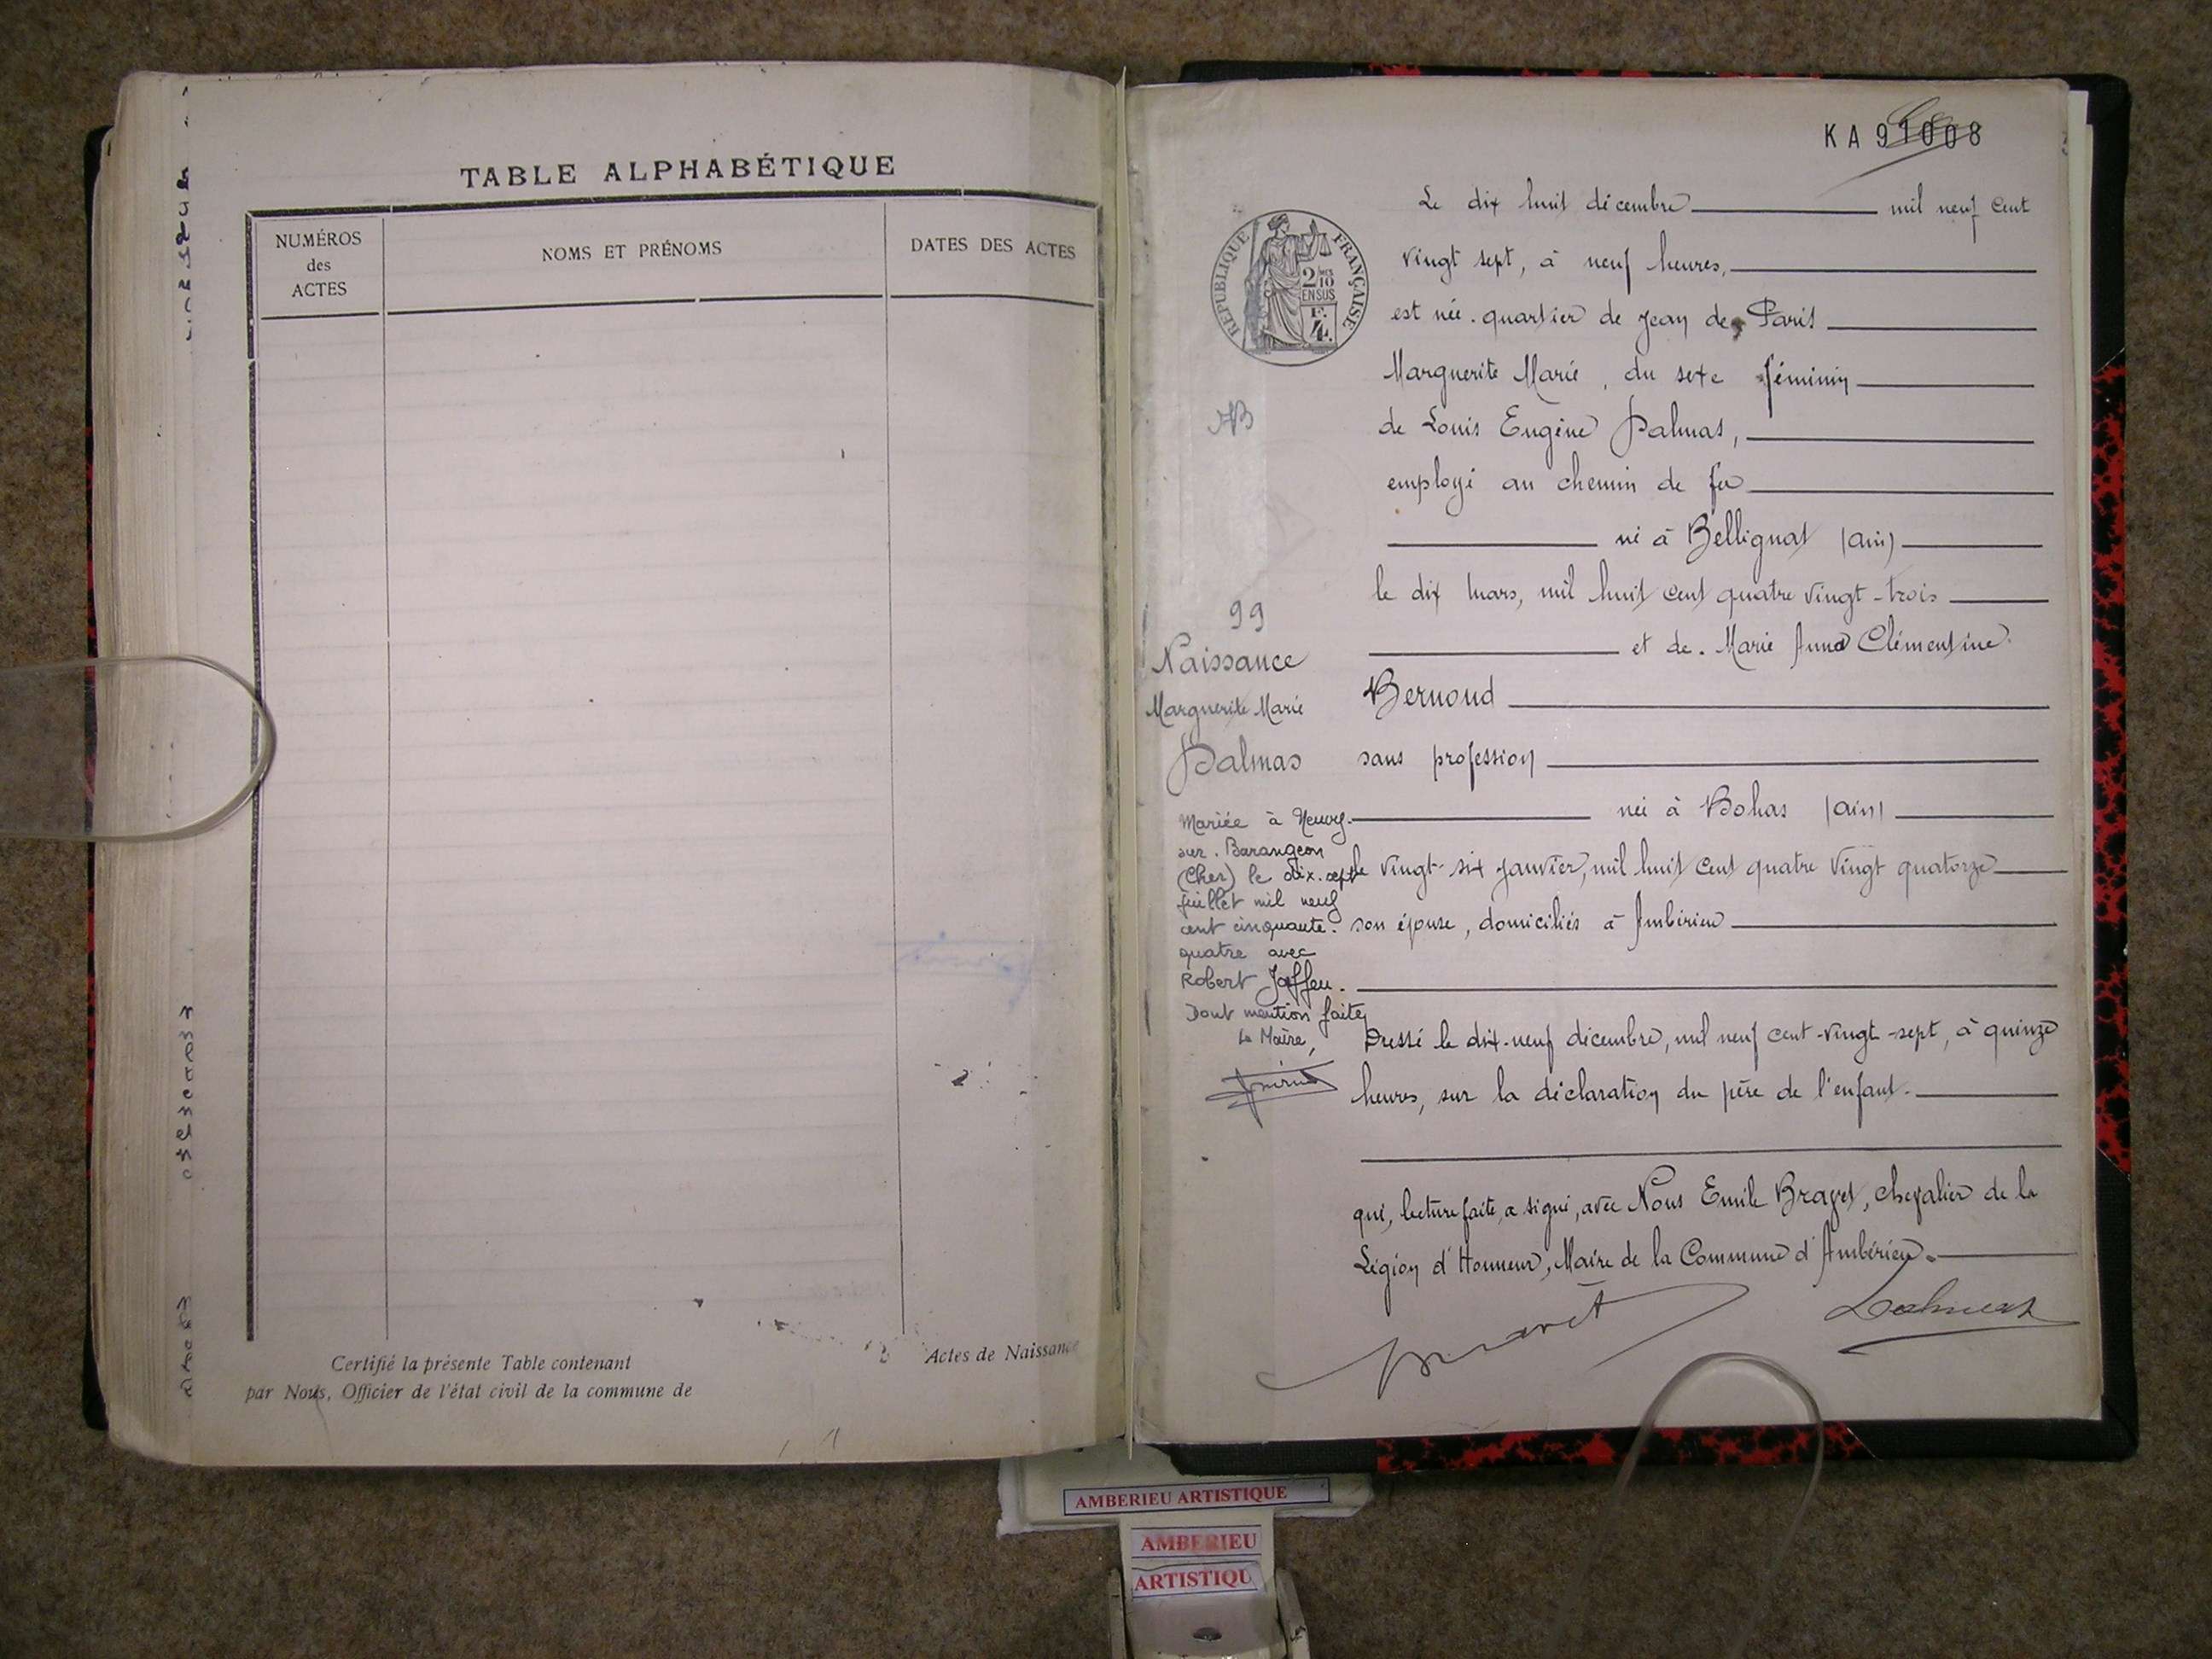 TABLE ALPHABÉTIQUE
NUMÉROS
des
ACTES
NOMS ET PRÉNOMS
DATES DES ACTES
Certifié la présente Table contenant
Actes de Naissance
par Nous, Officier de l'état civil de la commune de
KA 91008
RÉPUBLIQUE FRANÇAISE
2/10
EN SUS
4
Le dix huit décembre mil neuf cent
vingt sept, à neuf heures,
est née . quartier de Jean de Paris
Marguerite Marie, du sexe féminin
de Louis Eugène Dalmas,
employé au chemin de fer
né à Bellignat (ain)
le dix mars, mil huit cent quatre vingt-trois
et de . Marie Anna Clémentine
Bernoud
sans profession
née à Bohas (ain)
le vingt-six janvier, mil huit cent quatre vingt quatorze
son épouse, domiciliés à Ambérieu
Dressé le dix-neuf décembre, mil neuf cent-vingt-sept, à quinze
heures, sur la déclaration du père de l'enfant.
qui, lecture faite, a signé, avec Nous Emile Bravet, chevalier de la
Légion d'Honneur, Maire de la Commune d'Ambérieu.
Bravet
Dalmas
99
Naissance
Marguerite Marie
Dalmas
Mariée à Neuvy-
sur-Barangeon
(Cher) le dix-sept
juillet mil neuf
cent cinquante-
quatre avec
Robert Joffeu.
Dont mention faite
Le Maire,
AMBERIEU ARTISTIQUE
AMBERIEU
ARTISTIQU